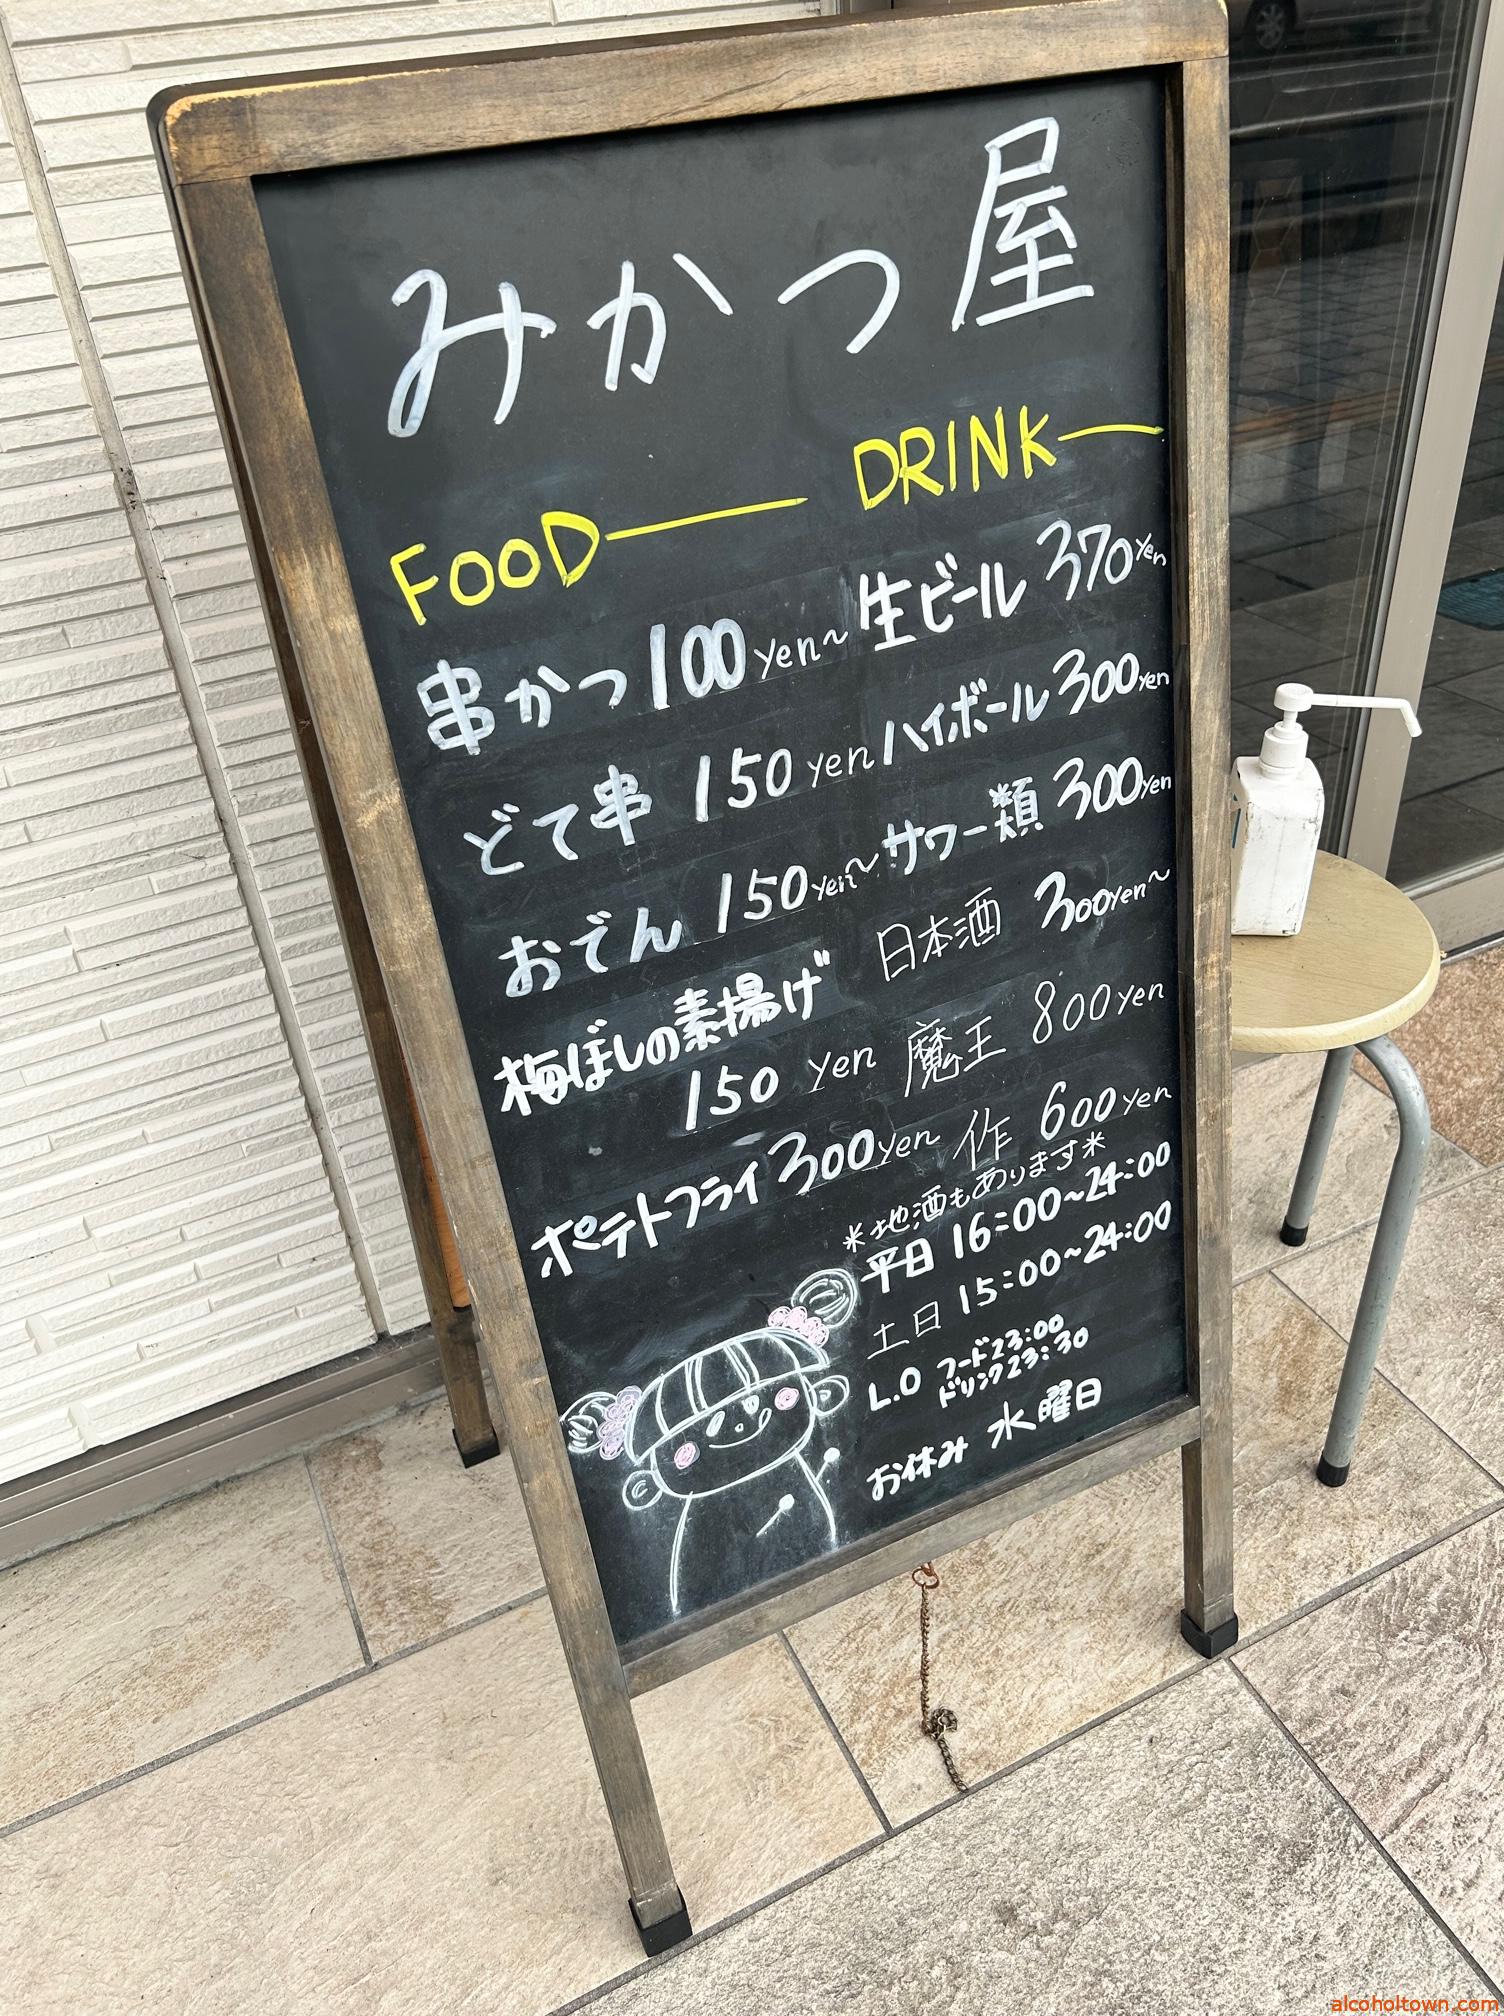 みかつ屋
FOOD
串かつ 100 yen～
どて串 150 yen
おでん 150 yen～
梅ぼしの素揚げ
150 yen
ポテトフライ 300 yen
DRINK
生ビール 370 yen
ハイボール 300 yen
サワー類 300 yen
日本酒 300 yen～
魔王 800 yen
作 600 yen
*地酒もあります*
平日 16:00～24:00
土日 15:00～24:00
L.O フード23:00
ドリンク23:30
お休み 水曜日
alcoholtown.com